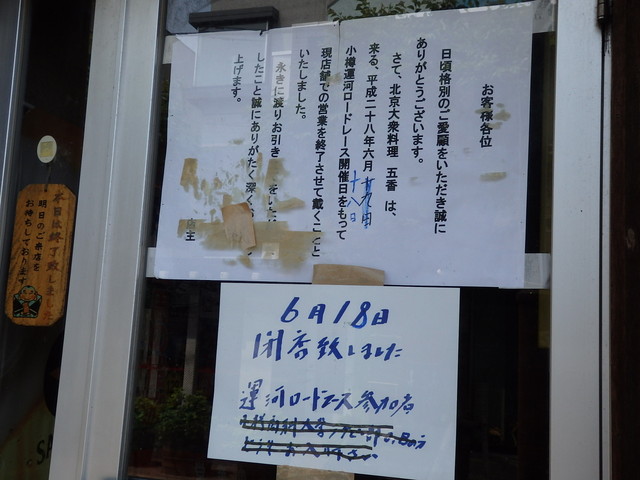 お客様各位
日頃格別のご愛顧をいただき誠に
ありがとうございます。
さて、北京大衆料理 五香 は、
来る、平成二十八年六月十九日
十八日
小樽運河ロードレース開催日をもって
現店舗での営業を終了させて戴くこと
いたしました。
永きに渡りお引き をいた
したこと誠にありがたく深く
上げます。
店主
6月18日
閉店致しました
運河ロードレース参加店
本日は終了致しました
明日のご来店を
お待ちしております